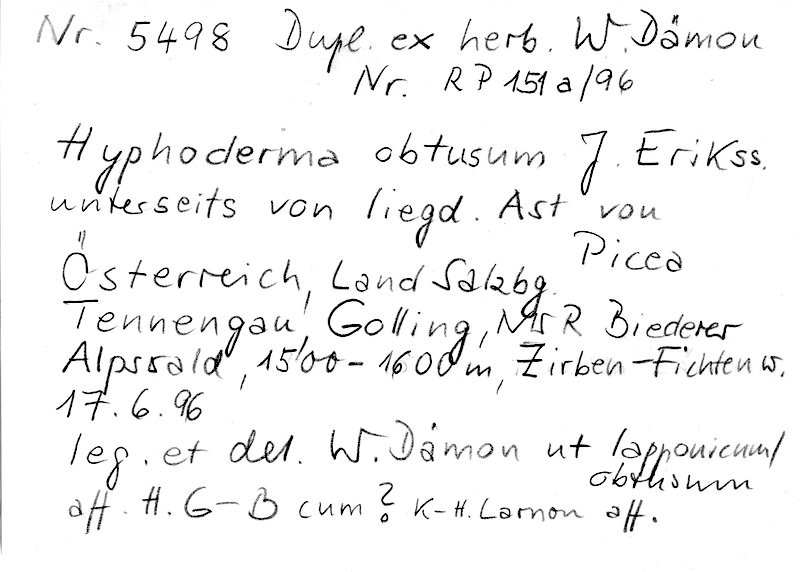 Nr. 5498 Dupl. ex herb. W. Dämon
Nr. RP 151a/96
Hyphoderma obtusum J. Erikss.
unterseits von liegd. Ast von
Picea
Österreich, Land Salzbg.
Tennengau, Golling, NWR Biederer
Alpswald, 1500-1600m, Zirben-Fichtenw.
17.6.96
leg. et det. W. Dämon ut lapponicum/
obtusum
aff. H. G-B cum? K-H. Larsson aff.